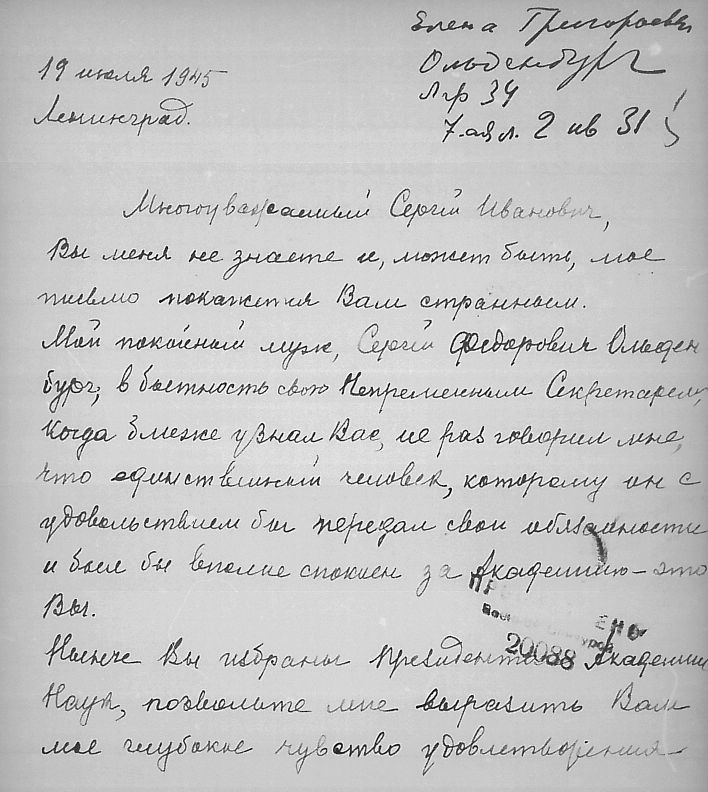 Елена Григорьевна
Ольденбург
Лгр 34
7-ая л. 2 кв 31
19 июля 1945
Ленинград.
Многоуважаемый Сергей Иванович,
Вы меня не знаете и, может быть, мое
письмо покажется Вам странным.
Мой покойный муж, Сергей Федорович Ольден
бург, в бытность свою Непременным Секретарем,
когда ближе узнал Вас, не раз говорил мне,
что единственный человек, которому он с
удовольствием бы передал свои обязанности
и был бы вполне спокоен за Академию – это
Вы.
20088
Нынче Вы избраны президентом Академии
Наук, позвольте мне выразить Вам
мое глубокое чувство удовлетворения –